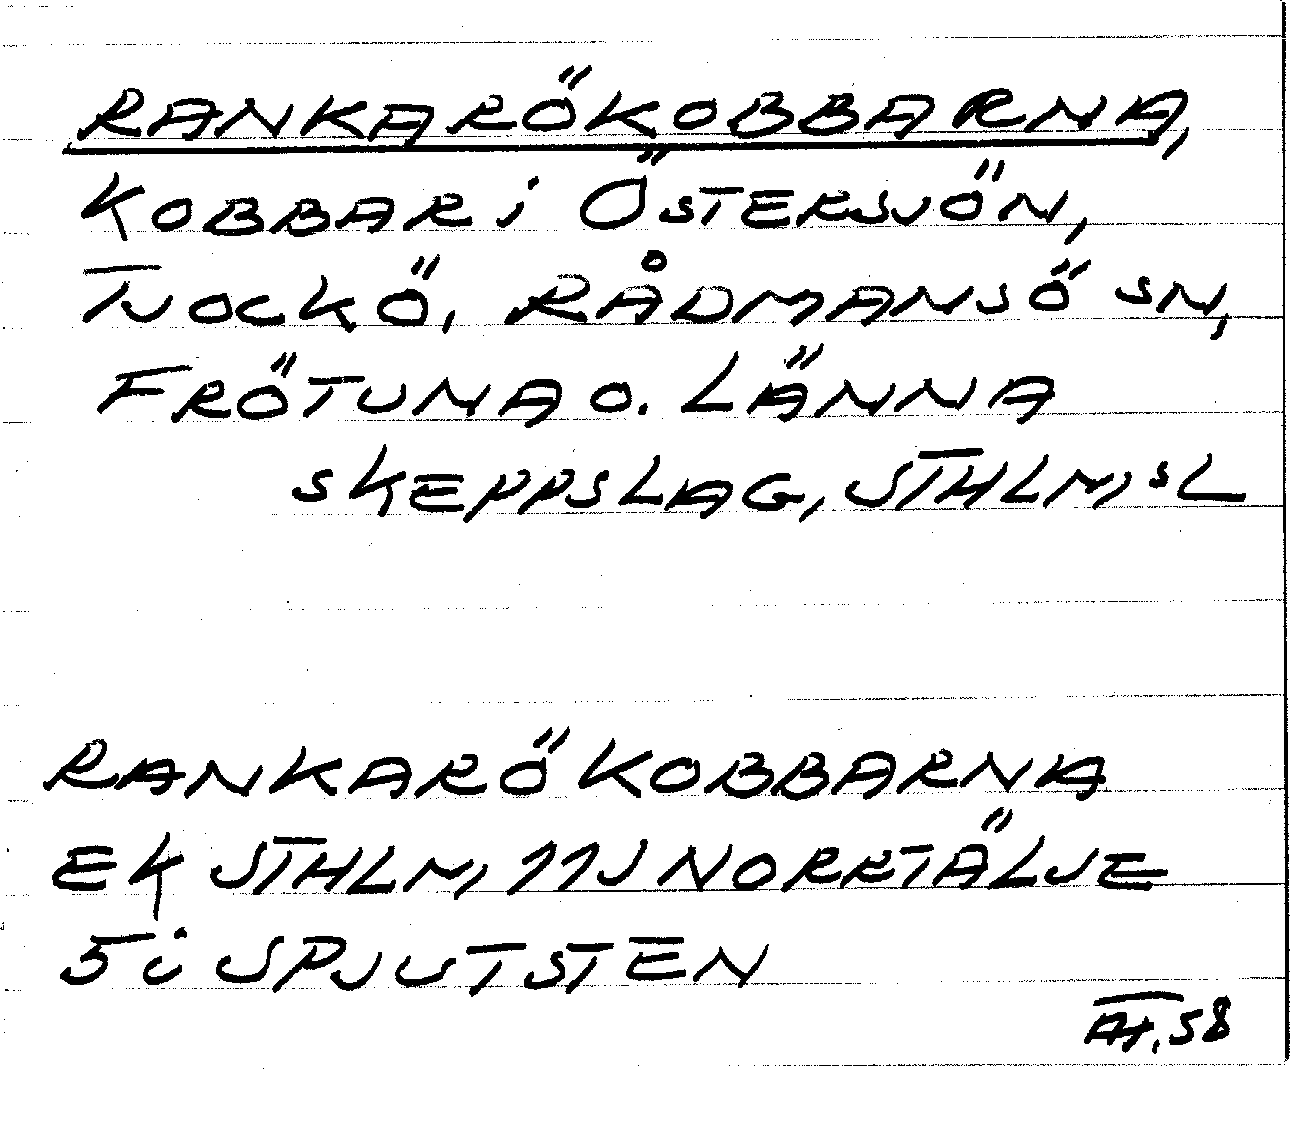 RANKARÖKOBBARNA,
KOBBAR i ÖSTERSJÖN,
TJOCKÖ, RÅDMANSÖ SN,
FRÖTUNA O. LÄNNA
SKEPPSLAG, STHLM, SL
RANKARÖKOBBARNA
EK STHLM, 11J NORRTÄLJE
5i SPJUTSTEN
58